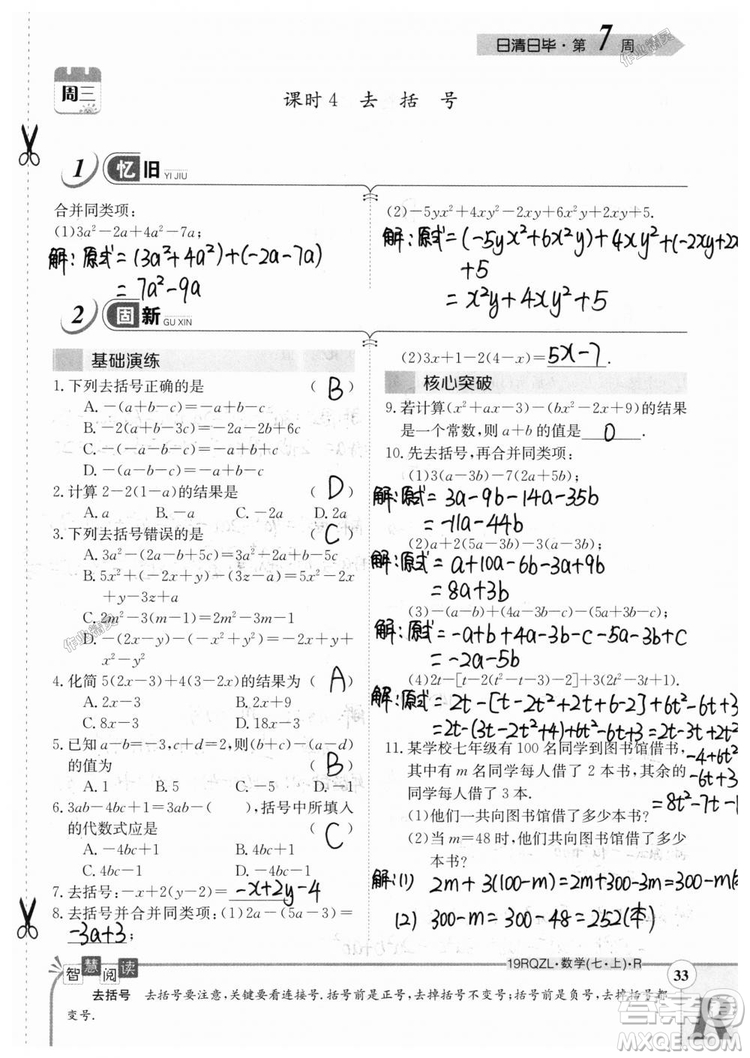 日清日毕·第7周
作业精灵
周三
课时4 去 括 号
1 忆旧
YI JIU
合并同类项:
(1)3a²-2a+4a²-7a;
解:原式=(3a²+4a²)+(-2a-7a)
=7a²-9a
(2)-5yx²+4xy²-2xy+6x²y+2xy+5.
解:原式=(-5yx²+6x²y)+4xy²+(-2xy+2
+5
=x²y+4xy²+5
2 固新
GU XIN
基础演练
1.下列去括号正确的是 ( B )
A.-(a+b-c)=-a+b-c
B.-2(a+b-3c)=-2a-2b+6c
C.-(-a-b-c)=-a+b+c
D.-(a-b-c)=-a+b-c
2.计算2-2(1-a)的结果是 ( D )
A.a B.-a C.-2a D.2a
3.下列去括号错误的是 ( C )
A.3a²-(2a-b+5c)=3a²-2a+b-5c
B.5x²+(-2x+y)-(3z-a)=5x²-2x+y-3z+a
C.2m²-3(m-1)=2m²-3m-1
D.-(2x-y)-(-x²+y²)=-2x+y+x²-y²
4.化简5(2x-3)+4(3-2x)的结果为 ( A )
A.2x-3 B.2x+9
C.8x-3 D.18x-3
5.已知a-b=-3,c+d=2,则(b+c)-(a-d)的值为 ( B )
A.1 B.5 C.-5 D.-1
6.3ab-4bc+1=3ab-( ),括号中所填入的代数式应是 ( C )
A.-4bc+1 B.4bc+1
C.4bc-1 D.-4bc-1
7.去括号:-x+2(y-2)=-x+2y-4.
8.去括号并合并同类项:(1)2a-(5a-3)=
-3a+3;
(2)3x+1-2(4-x)=5x-7.
核心突破
9.若计算(x²+ax-3)-(bx²-2x+9)的结果是一个常数,则a+b的值是 0 .
10.先去括号,再合并同类项:
(1)3(a-3b)-7(2a+5b);
解:原式=3a-9b-14a-35b
=-11a-44b
(2)a+2(5a-3b)-3(a-3b);
解:原式=a+10a-6b-3a+9b
=8a+3b
解:原式=-a+b+4a-4b-5a+3b+c
=-2a+c
解:原式=2t-[t-4t²+2t-4]+6t²-6t+3
=2t-(3t-2t²-4)+6t²-6t+3=2t-3t+2t²
-4+6t²
-6t+3
=8t²-7t-1
11.某学校七年级有100名同学到图书馆借书,其中m名同学每人借了2本,其余同学每人借了3本.
(1)他们一共向图书馆借了多少本书?
(2)当m=48时,他们一共向图书馆借了多少本书?
解:(1) 2m+3(100-m)=2m+300-3m=300-m(
(2) 300-m=300-48=252(本)
智慧阅读
去括号 去括号要注意,关键要看连接号.括号前是正号,去掉括号不变号;括号前是负号,去掉括号都变号.
19RQZL·数学(七·上)·R
33
答案圈
MXQE.COM